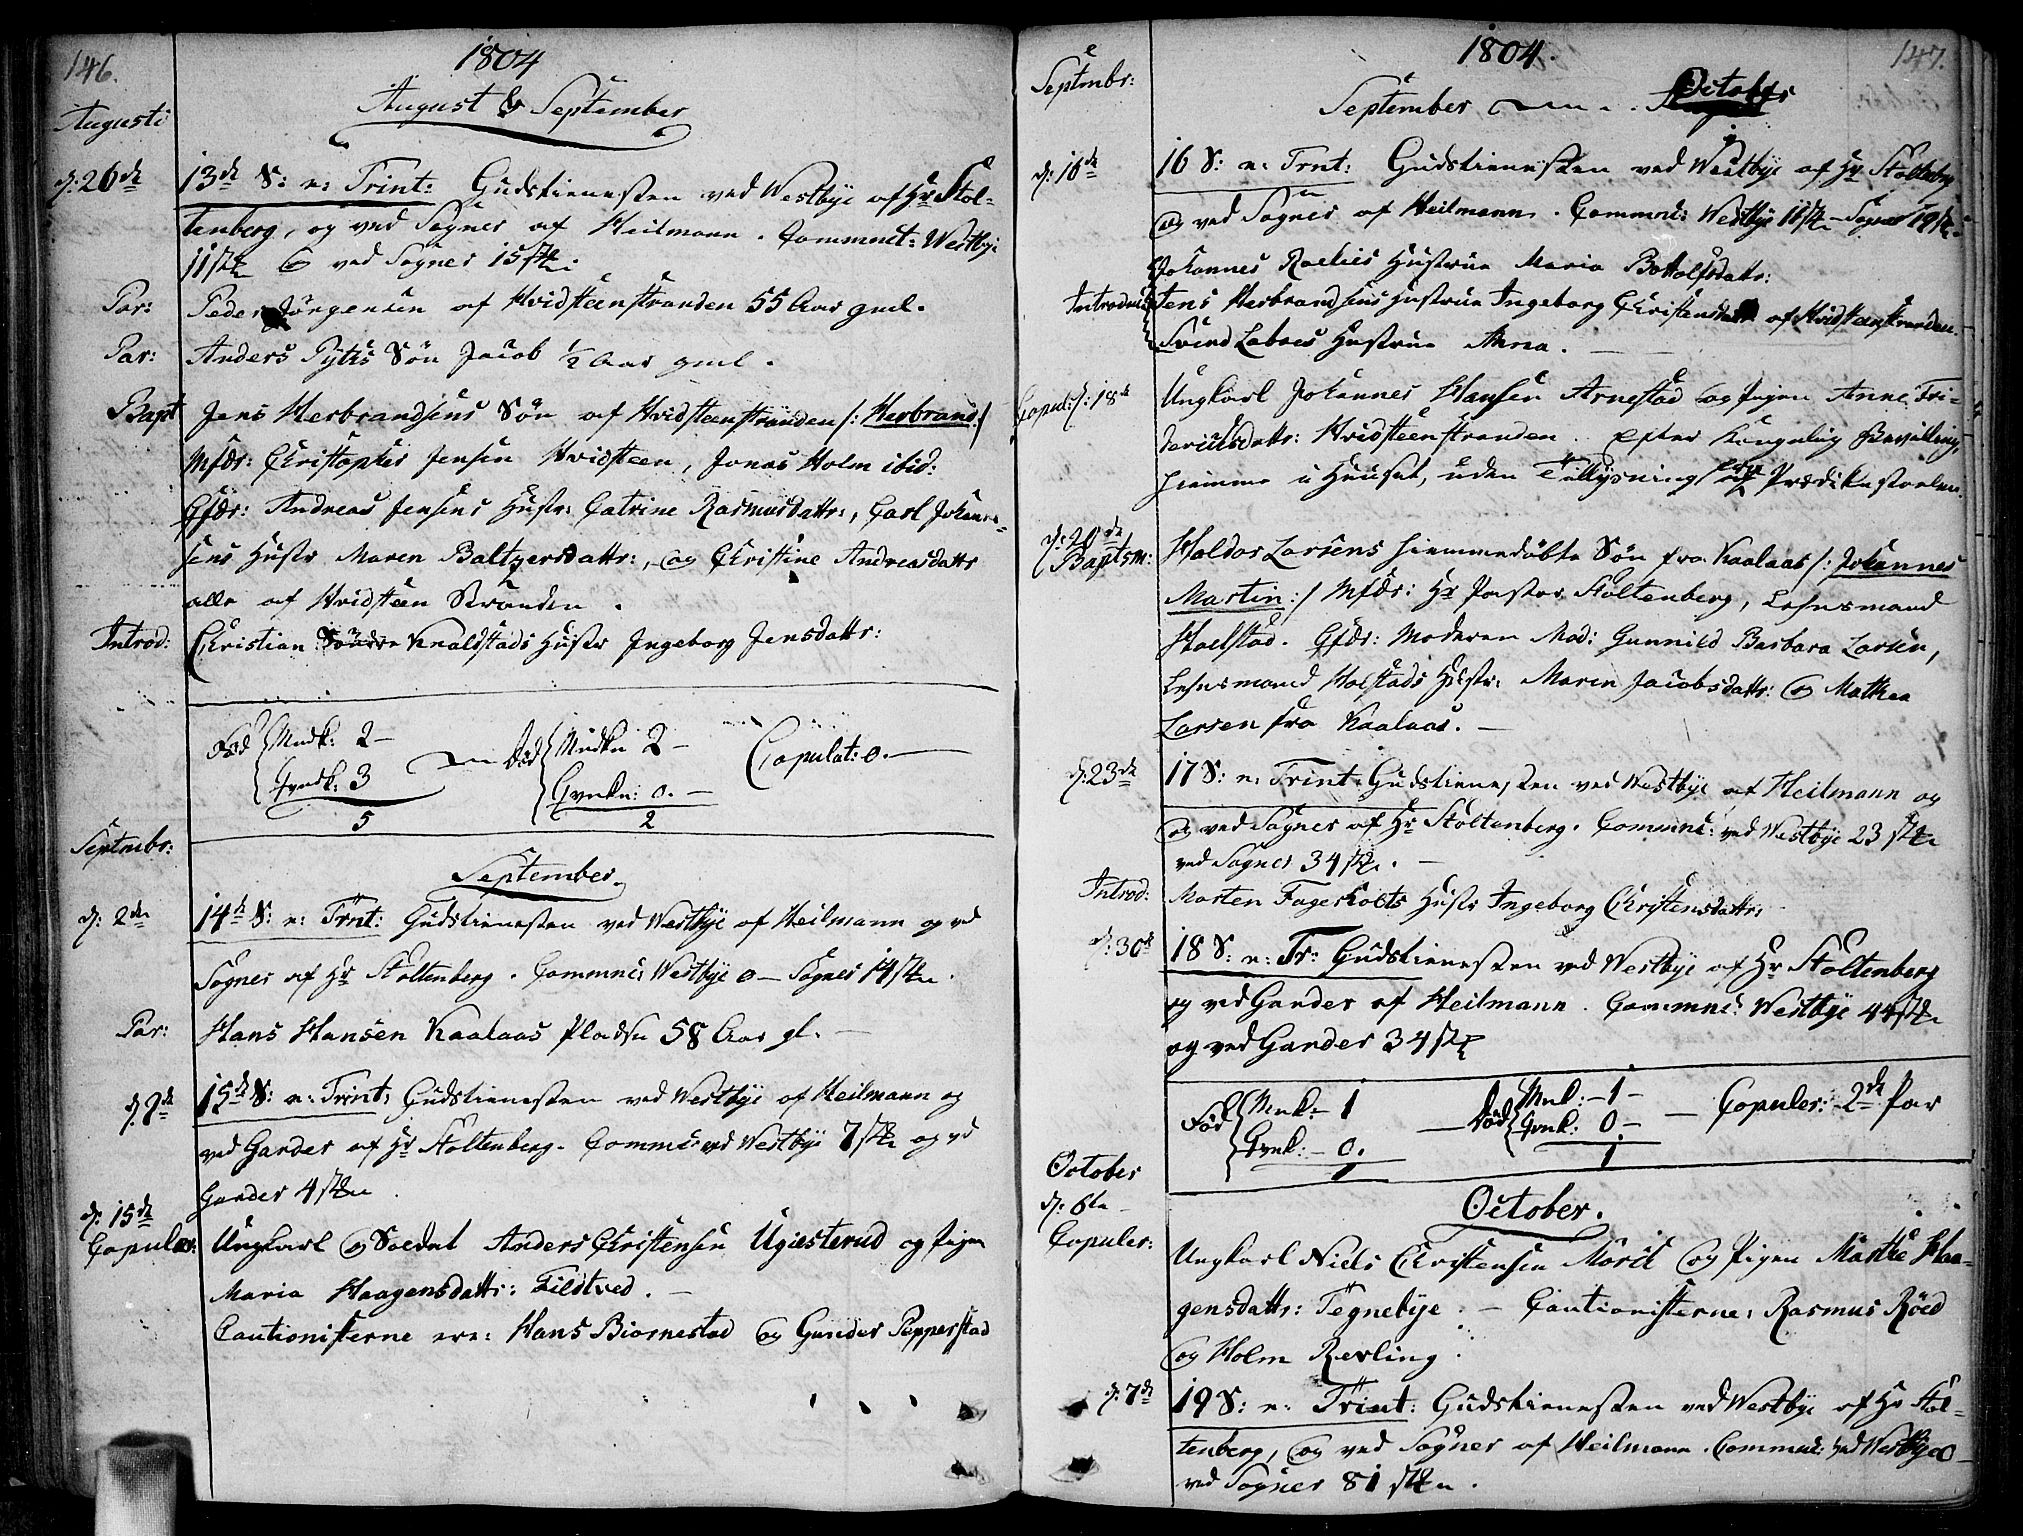 146.
1804
August & September
Augusti
d: 26de 13de S: e: Trint: Gudstienesten ved Westbye af Hr Stol-
tenberg, og ved Sogner af Heilmann. Commnct: Westbye
11 stk & ved Sogner 15 stk:
Par: Peder Jörgensen af Hvidsteenstranden 55 Aar gml.
Par: Anders Pytts Søn Jacob 1/2 Aar gml.
Bapt Jens Herbrandsens Søn af Hvidsteenstranden /: Herbrand :/
Mfdr: Christopher Jensen Hvidsteen, Jonas Holm ibid:
Gfdr: Andreas Jensens Hustr: Catrine Rasmusdattr:, Carl Johann-
sens Hustr Maren Baltzersdattr:, og Christine Andreasdattr
alle af Hvidsteen Stranden.
Introd: Christian Knaldstads Hustr Ingeborg Jensdattr:
Fød Mndk: 2 — Død Mndkn 2 — Copulat: 0. —
Qvndk: 3 Qvnkn: 0. —
5 2
Septmbr:
September.
d: 2den 14de S: e: Trnt: Gudstienesten ved Westbye af Heilmann og vd
Sogner af Hr Stoltenberg. Commnc: Westbye 0 — Sogner 14 stk.
Par: Hans Hansen Kaalaas Pladsen 58 Aar gl. —
d: 9de 15de S: e: Trint: Gudstienesten ved Westbye af Heilmann og
ved Garder af Hr Stoltenberg. Commnc: ved Westbye 7 stk og vd
Garder 4 stkn.
d: 15de
Copuler: Ungkarl og Soldat Anders Christensen Ugiesterud og Pigen
Maria Haagensdattr: Fildtved. —
Cautionisterne ere: Hans Biørnestad og Gunder Pepperstad
147.
1804.
Septmbr:
September — October
d: 16de 16 S: e: Trnt: Gudstienesten ved Westbye af Hr Stoltenberg
og ved Sogner af Heilmann. Commnc: Westbye 11 stk — Sogner 19 stk.
Johannes Hustrue Maria Bottolfsdattr:
Introduc: Jens Herbrandsens Hustrue Ingeborg Christensdattr af Hvidsteenstranden.
Svend Labaes Hustrue Anna. —
Copul: d: 18de Ungkarl Johannes Hansen Arnestad og Pigen Anne Fri-
dericksdattr: Hvidsteenstranden. Efter Kongelig Bevilling,
hiemme i Huuset, uden Tillysning af Prædikestoelen.
d: 20de
Baptsm: Haldor Larsens hiemmedøbte Søn fra Kaalaas /: Johannes
Martin :/ Mfdr: Hr Pastor Stoltenberg, Lehnsmand
Hoelstad. Gfdr: Moderen Mad: Gunnild Barbara Larsen,
Lehnsmand Holstads Hustr: Maren Jacobsdattr: og Mathea
Larsen fra Kaalaas. —
d: 23de 17 S: e: Trint: Gudstienesten ved Westbye af Heilmann og
og ved Sogner af Hr Stoltenberg. Commnc: ved Westbye 23 stk
ved Sogner 34 stk. —
Introd: Morten Fagerholts Hustr Ingeborg Christensdattr:
d: 30de 18 S: e: Tr: Gudstienesten ved Westbye af Hr Stoltenberg
og ved Garder af Heilmann. Commnc: Westbye 44 stk
og ved Garder 34 stk
Fød Mnk: — 1 — Død Mnk: — 1 — Copuler: 2de Par
Qvnk: — 0. Qvnk: 0 —
1 1
October
October.
d: 6te
Copuler: Ungkarl Niels Christensen Mörck og Pigen Marthe Haa-
gensdattr: Tegnebye. — Cautionisterne: Rasmus Röed
og Holm Revling.
d: 7de 19 S: e: Trint: Gudstienesten ved Westbye af Hr Stol-
tenberg, og ved Sogner af Heilmann. Commnc: ved Westbye 0 —
ved Sogner 81 stkn.